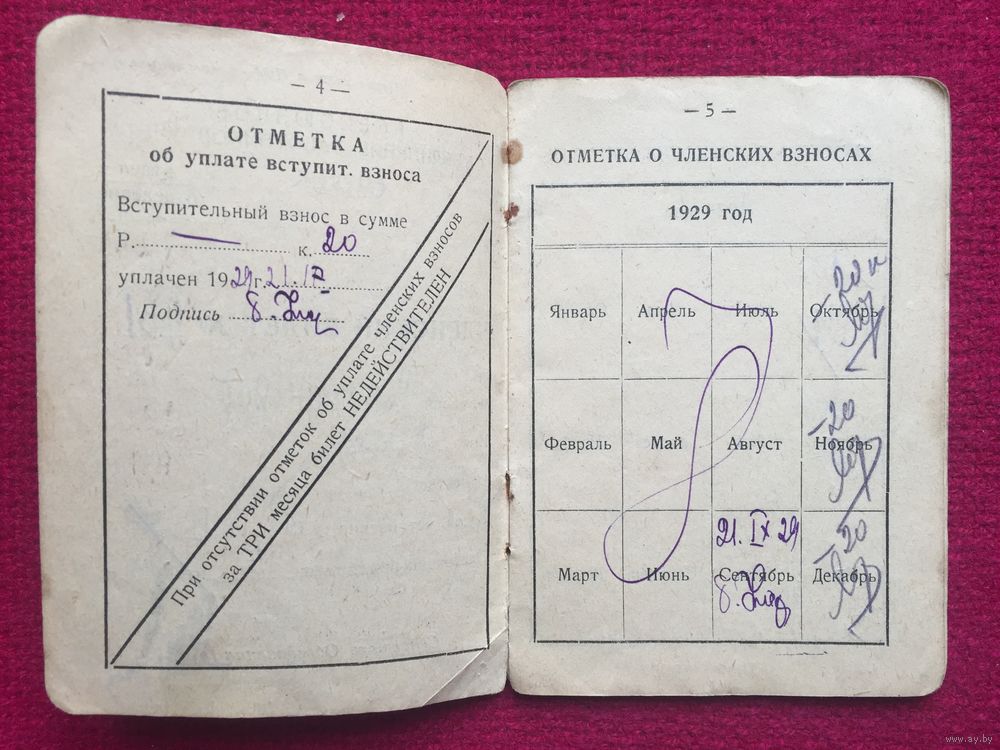 — 4 —
ОТМЕТКА
об уплате вступит. взноса
Вступительный взнос в сумме
Р. — к. 20
уплачен 1929 г. 21. IX
Подпись
При отсутствии отметок об уплате членских взносов
за ТРИ месяца билет НЕДЕЙСТВИТЕЛЕН
— 5 —
ОТМЕТКА О ЧЛЕНСКИХ ВЗНОСАХ
1929 год
Январь Апрель Июль Октябрь
–20 к
Февраль Май Август Ноябрь
–20
21. IX 29
Март Июнь Сентябрь Декабрь
–20
www.ay.by